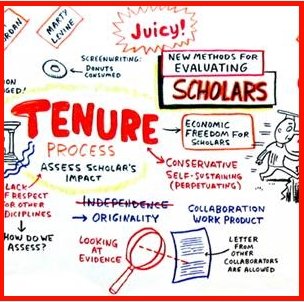 RDAN
MARTY
LEVINE
Juicy!
SCREENWRITING:
DONUTS
CONSUMED
NEW METHODS FOR
EVALUATING
SCHOLARS
ION
NGED!
TENURE
PROCESS
ASSESS SCHOLAR'S
IMPACT
ECONOMIC
FREEDOM FOR
SCHOLARS
CONSERVATIVE
SELF-SUSTAINING
(PERPETUATING)
LACK
OF RESPECT
FOR OTHER
DICIPLINES
HOW DO WE
ASSESS?
INDEPENDENCE
→ ORIGINALITY
LOOKING
AT
EVIDENCE
COLLABORATION
WORK PRODUCT
LETTER
FROM
OTHER
COLLABORATORS
ARE ALLOWED